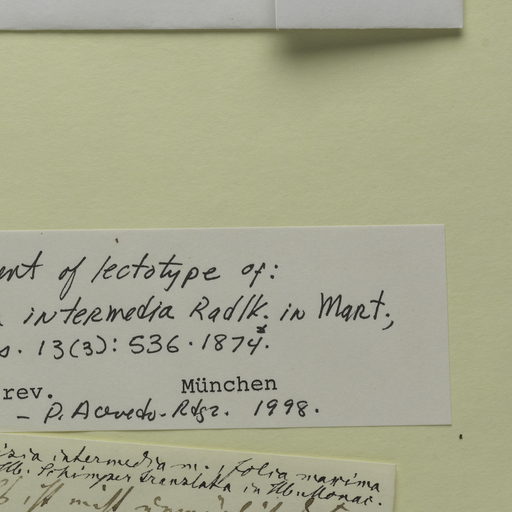 ent of lectotype of:
intermedia Radlk. in Mart.,
s. 13(3): 536. 1874.
rev. München
– P. Acevedo-Rdgz. 1998.
izia intermedia m., folia maxima
Hb. Schimper translata in Hb. Monac.
ist nicht